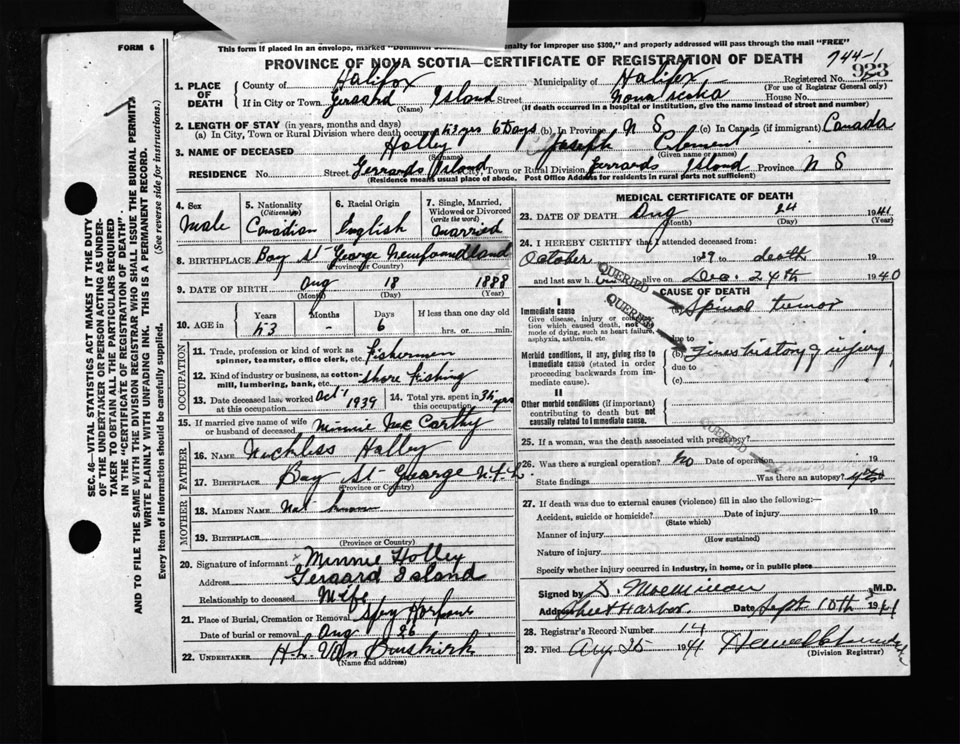 FORM 6
This form if placed in an envelope, marked "Dominion penalty for improper use $300," and properly addressed will pass through the mail "FREE"
PROVINCE OF NOVA SCOTIA—CERTIFICATE OF REGISTRATION OF DEATH
744-1
923
1. PLACE OF DEATH
County of Halifax Municipality of Halifax Registered No.
(For use of Registrar General only)
If in City or Town Gerrard Island Street Nova Scotia House No.
(Name) (If death occurred in a hospital or institution, give the name instead of street and number)
2. LENGTH OF STAY (in years, months and days)
(a) In City, Town or Rural Division where death occurred 53 yrs 6 days (b) In Province N S (c) In Canada (if immigrant) Canada
3. NAME OF DECEASED Holley Joseph Clement
(Surname) (Given name or names)
RESIDENCE No. Street Gerrards Island City, Town or Rural Division Gerrards Island Province N S
(Residence means usual place of abode. Post Office Address for residents in rural parts not sufficient)
4. Sex Male
5. Nationality (Citizenship) Canadian
6. Racial Origin English
7. Single, Married, Widowed or Divorced (write the word) Married
8. BIRTHPLACE Bay St George Newfoundland
(Province or Country)
9. DATE OF BIRTH Aug 18 1888
(Month) (Day) (Year)
10. AGE in Years Months Days If less than one day old
53 - 6 hrs. or min.
OCCUPATION
11. Trade, profession or kind of work as spinner, teamster, office clerk, etc. Fishermen
12. Kind of industry or business, as cotton-mill, lumbering, bank, etc. shore fishing
13. Date deceased last worked at this occupation Oct 1 1939
14. Total yrs. spent in this occupation yrs
15. If married give name of wife or husband of deceased Minnie Mc Carthy
FATHER
16. NAME Nickless Holley
17. BIRTHPLACE Bay St George N.F.L.
(Province or Country)
MOTHER
18. MAIDEN NAME Not known
19. BIRTHPLACE
(Province or Country)
20. Signature of informant Minnie Holley
Address Geraard Island
Relationship to deceased Wife
21. Place of Burial, Cremation or Removal Spry Harbour
Date of burial or removal Aug 26
22. UNDERTAKER H L Van Buskirk
(Name and address)
MEDICAL CERTIFICATE OF DEATH
23. DATE OF DEATH Aug 24 1941
(Month) (Day)
24. I HEREBY CERTIFY that I attended deceased from:
October 1939 to death
and last saw him alive on Dec. 24th 1940
QUERIED
QUERIED
CAUSE OF DEATH
I
Immediate cause
Give disease, injury or complication which caused death, not the mode of dying, such as heart failure, asphyxia, asthenia, etc.
(a) Spinal tumor
due to
Morbid conditions, if any, giving rise to immediate cause (stated in order proceeding backwards from immediate cause).
(b) Gives history of injury
due to
(c)
II
Other morbid conditions (if important) contributing to death but not causally related to immediate cause.
QUERIED
25. If a woman, was the death associated with pregnancy?
26. Was there a surgical operation? No Date of operation 19
State findings Was there an autopsy?
27. If death was due to external causes (violence) fill in also the following:—
Accident, suicide or homicide? Date of injury 19
(State which)
Manner of injury
(How sustained)
Nature of injury
Specify whether injury occurred in industry, in home, or in public place
Signed by M.D.
Address Sheet Harbor. Date Sept 10th 1941
28. Registrar's Record Number 14
29. Filed Aug 25 1941
(Division Registrar)
SEC. 46—VITAL STATISTICS ACT MAKES IT THE DUTY
OF THE UNDERTAKER OR PERSON ACTING AS UNDER-
TAKER TO OBTAIN ALL THE PARTICULARS REQUIRED
IN THE "CERTIFICATE OF REGISTRATION OF DEATH".
AND TO FILE THE SAME WITH THE DIVISION REGISTRAR WHO SHALL ISSUE THE BURIAL PERMIT.
WRITE PLAINLY WITH UNFADING INK. THIS IS A PERMANENT RECORD.
Every item of information should be carefully supplied. (See reverse side for instructions.)